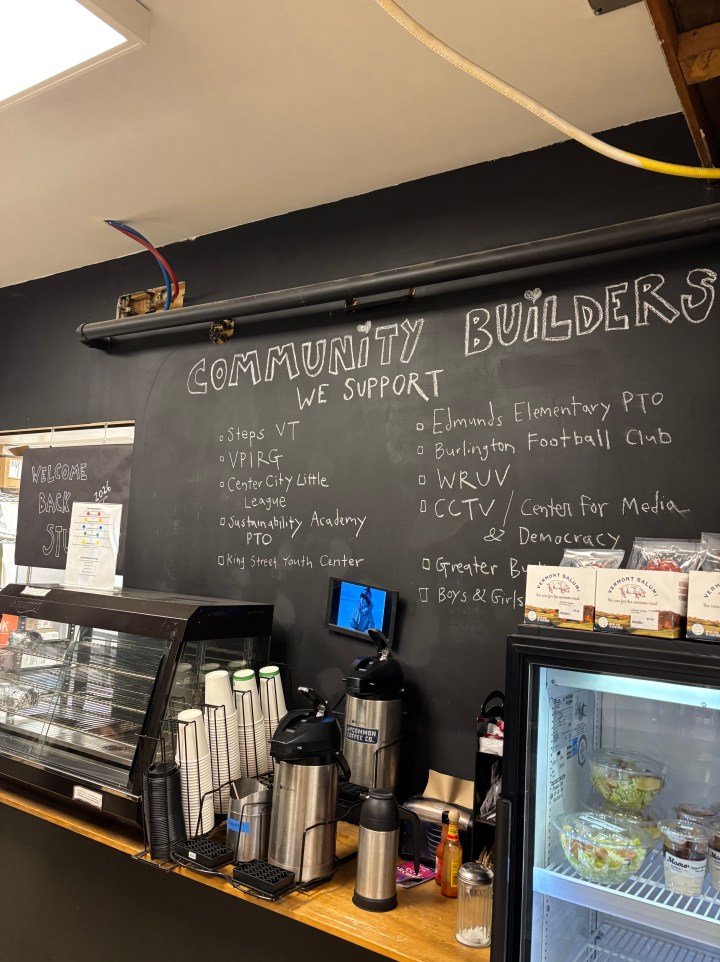 COMMUNITY BUILDERS
WE SUPPORT
Steps VT
VPIRG
Center City Little
League
Sustainability Academy
PTO
King Street Youth Center
Edmunds Elementary PTO
Burlington Football Club
WRUV
CCTV / Center for Media
& Democracy
Greater
Boys & Girls
WELCOME
BACK
2026
VERMONT SALUMI
VERMONT SALUMI
VERMONT SALUMI
UNCOMMON
COFFEE CO.
Momo